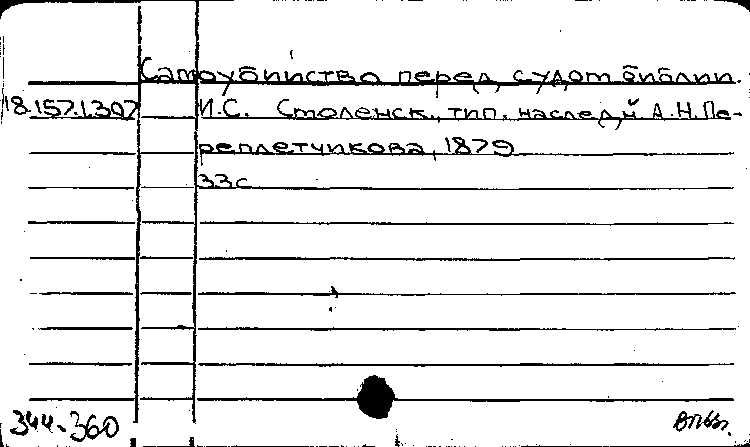 Самоубийство перед судом библии.
18.157.1.307 И.С. Смоленск., тип. наслед,й А.Н.Пе-
реплетчикова, 1879
33с
344-360